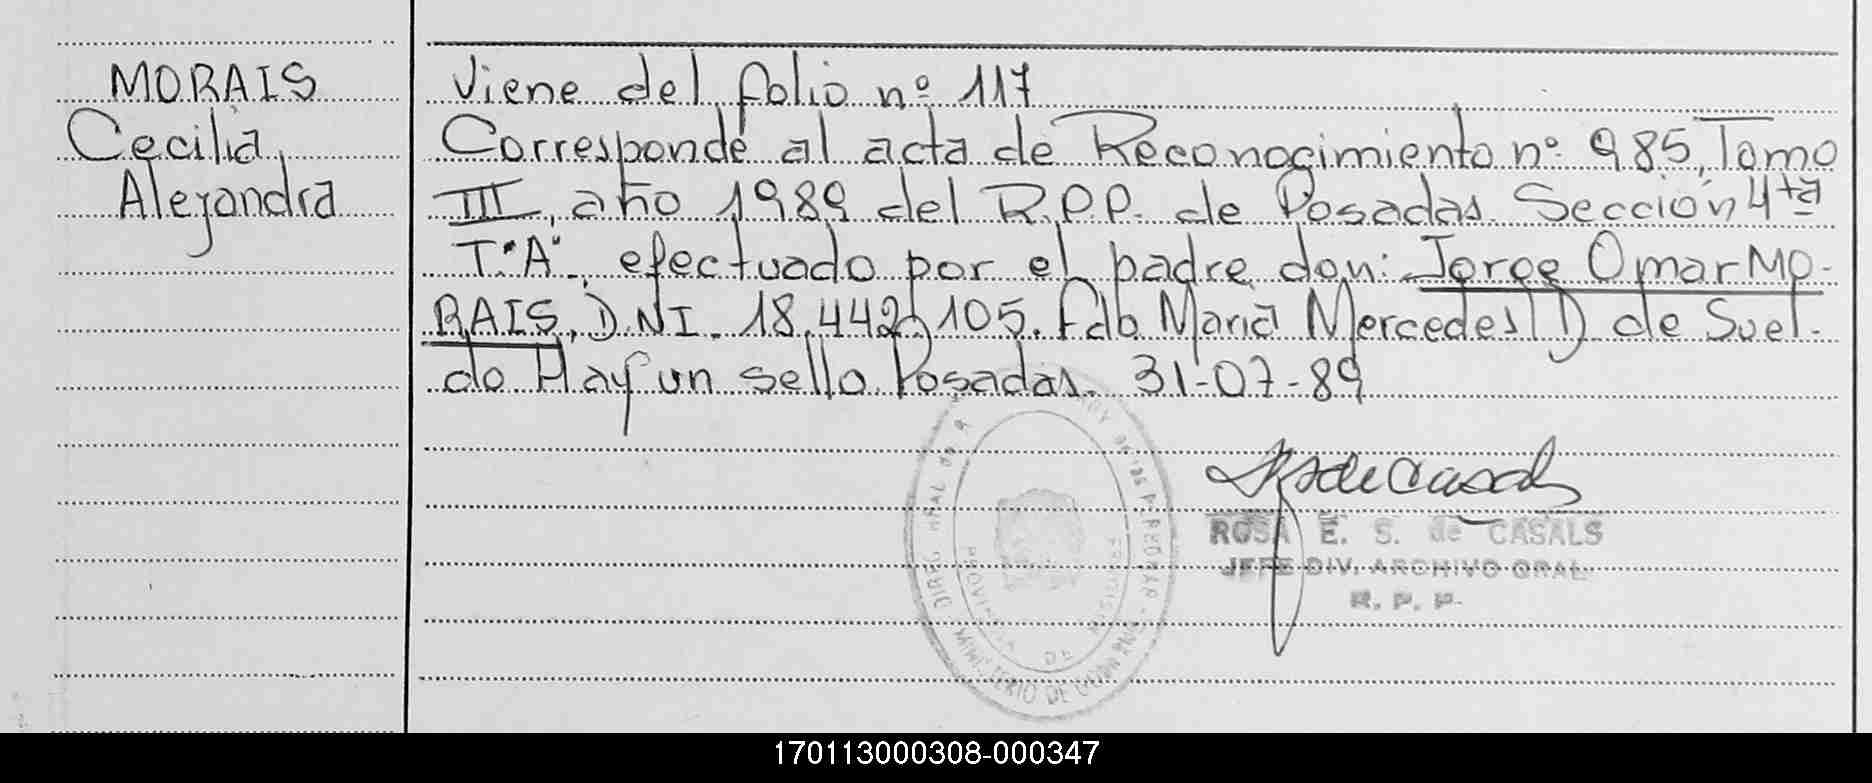 MORAIS
Cecilia
Alejandra
Viene del folio nº 117
Corresponde al acta de Reconocimiento nº 985, Tomo
III, año 1989 del R.P.P. de Posadas Sección 4ta
T."A"., efectuado por el padre don: Jorge Omar MO-
RAIS, D.NI. 18.442.105. Fdo María Mercedes D de Suel-
do Hay un sello. Posadas. 31-07-89
ROSA E. S. de CASALS
JEFE DIV. ARCHIVO GRAL.
R. P. P.
PROVINCIA DE MISIONES
MINISTERIO DE GOBIERNO
170113000308-000347